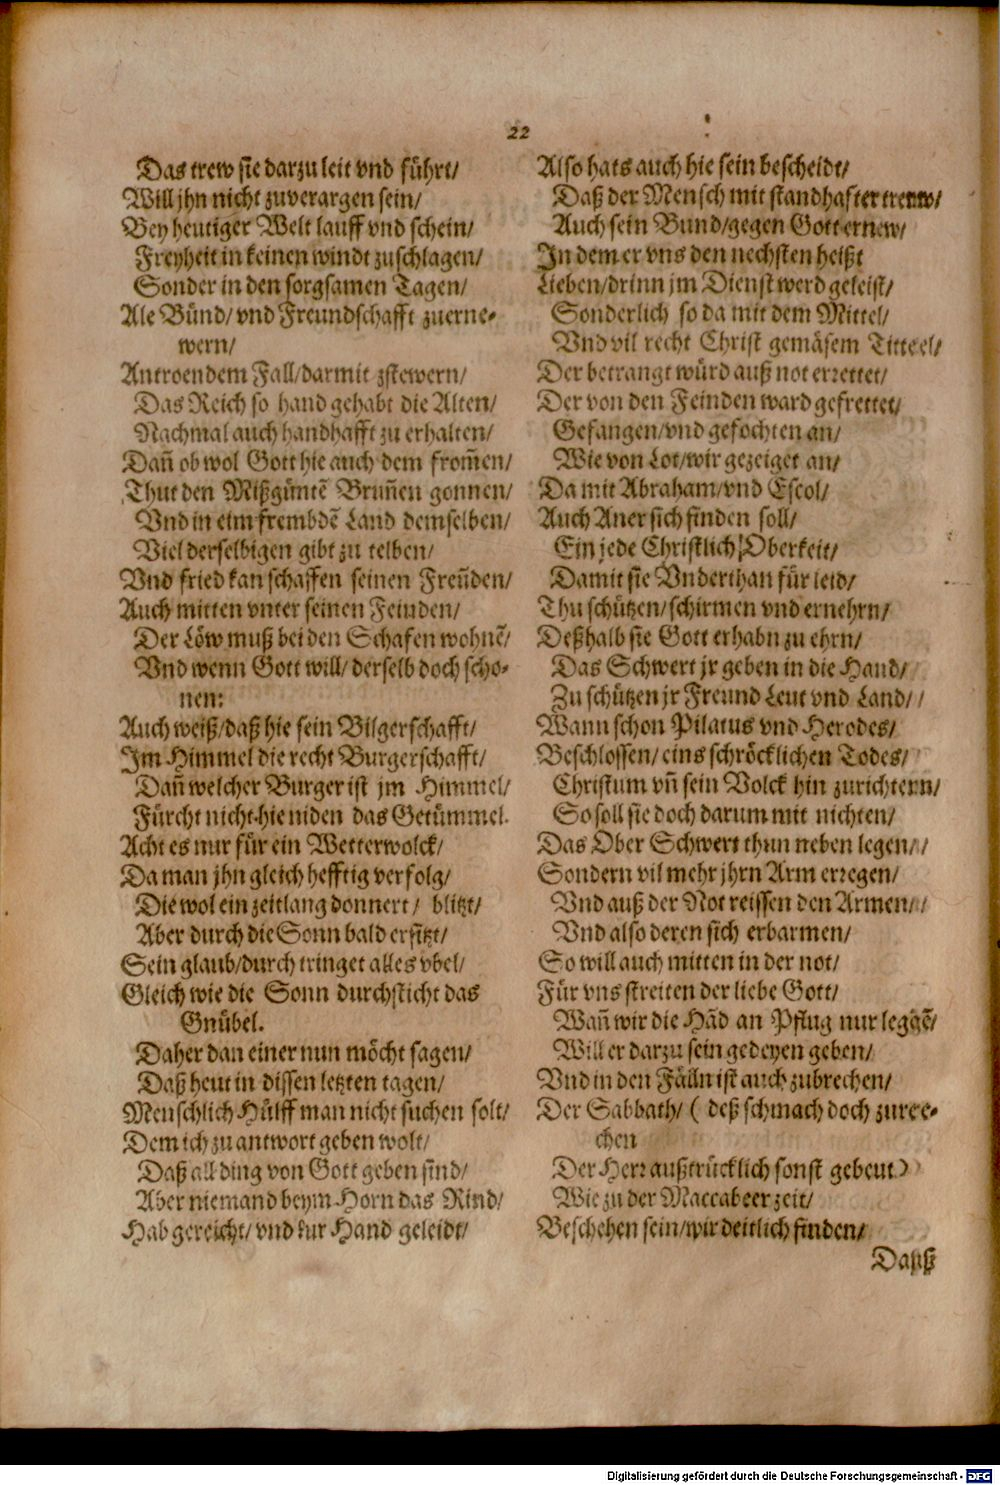 22
Das trew sie darzu leit vnd führt/
Will jhn nicht zuverargen sein/
Bey heutiger Welt lauff vnd schein/
Freyheit in keinen windt zuschlagen/
Sonder in den sorgsamen Tagen/
Ale Bünd/ vnd Freundschafft zuerne-
wern/
Antroendem Fall/darmit zstewern/
Das Reich so hand gehabt die Alten/
Nachmal auch handhafft zu erhalten/
Dañ ob wol Gott hie auch dem from̃en/
Thut den Mißgüntẽ Bruñen gonnen/
Vnd in eim frembdẽ Land demselben/
Viel derselbigen gibt zu telben/
Vnd fried kan schaffen seinen Freũden/
Auch mitten vnter seinen Feinden/
Der Löw muß bei den Schafen wohnẽ/
Vnd wenn Gott will/ derselb doch scho-
nen:
Auch weiß/daß hie sein Bilgerschafft/
Im Himmel die recht Burgerschafft/
Dañ welcher Burger ist jm Himmel/
Fürcht nicht hie niden das Getümmel.
Acht es nur für ein Wetterwolck/
Da man jhn gleich hefftig verfolg/
Die wol ein zeitlang donnert/ blitzt/
Aber durch die Sonn bald ersitzt/
Sein glaub/durch tringet alles vbel/
Gleich wie die Sonn durchsticht das
Gnübel.
Daher dan einer nun möcht sagen/
Daß heut in dissen letzten tagen/
Menschlich Hülff man nicht suchen solt/
Dem ich zu antwort geben wolt/
Daß all ding von Gott geben sind/
Aber niemand beym Horn das Rind/
Hab gereicht/ vnd zur Hand geleidt/
Also hats auch hie sein bescheidt/
Daß der Mensch mit standhafter trenw/
Auch sein Bund/gegen Gott ernew/
In dem er vns den nechsten heißt
Lieben/drinn jm Dienst werd geleist/
Sonderlich so da mit dem Mittel/
Vnd vil recht Christ gemäsem Titteel/
Der betrangt würd auß not errettet/
Der von den Feinden ward gefrettet/
Gefangen/vnd gefochten an/
Wie von Lot/wir gezeiget an/
Da mit Abraham/vnd Escol/
Auch Aner sich finden soll/
Ein jede Christlich Oberkeit/
Damit sie Vnderthan für leid/
Thu schützen/schirmen vnd ernehrn/
Deßhalb sie Gott erhabn zu ehrn/
Das Schwert jr geben in die Hand/
Zu schützen jr Freund Leut vnd Land/
Wann schon Pilatus vnd Herodes/
Beschlossen/ eins schröcklichen Todes/
Christum vñ sein Volck hin zurichtern/
So soll sie doch darum mit nichten/
Das Ober Schwert thun neben legen/
Sondern vil mehr jhrn Arm erregen/
Vnd auß der Not reissen den Armen/
Vnd also deren sich erbarmen/
So will auch mitten in der not/
Für vns streiten der liebe Gott/
Wañ wir die Hãd an Pflug nur leggẽ/
Will er darzu sein gedeyen geben/
Vnd in den Fälln ist auch zubrechen/
Der Sabbath/ ( deß schmach doch zuree-
chen
Der Herr außtrücklich sonst gebeut)
Wie zu der Maccabeer zeit/
Beschehen sein/wir deitlich finden/
Dauß
Digitalisierung gefördert durch die Deutsche Forschungsgemeinschaft - DFG